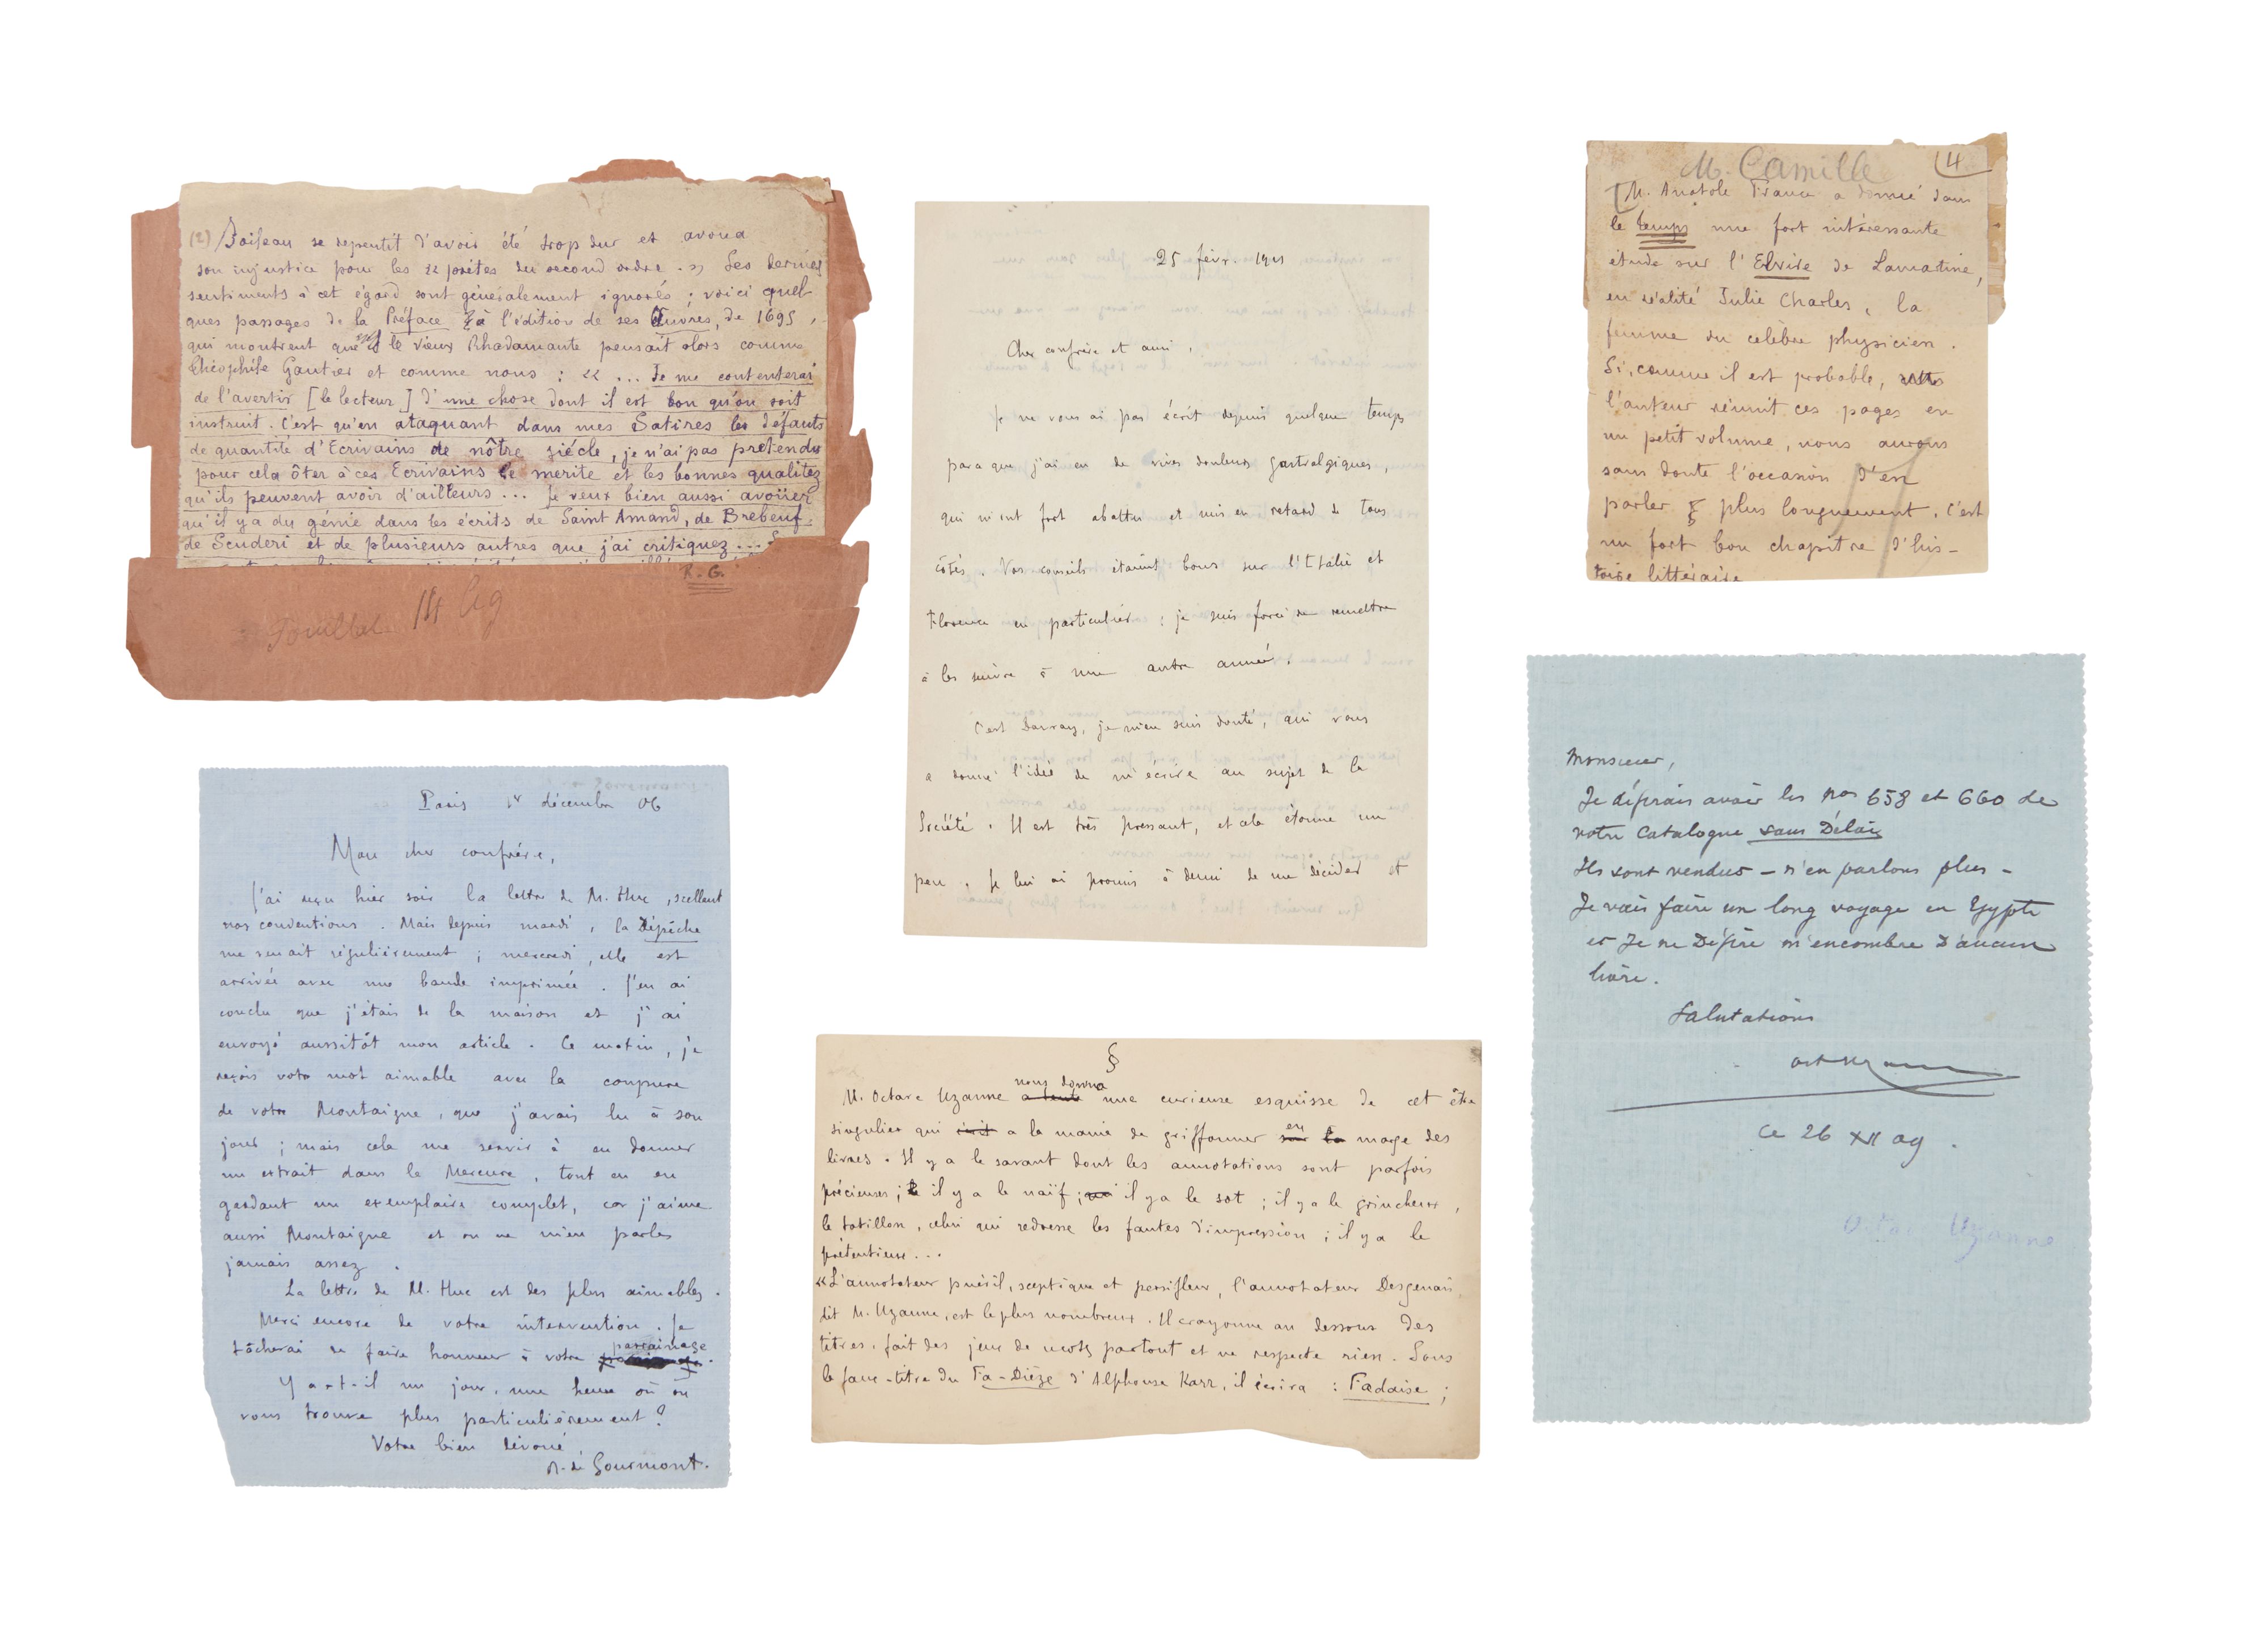 (2) Boileau se repentit d'avoir été trop dur et avoua
son injustice pour les « poètes du second ordre. » Ses derniers
sentiments à cet égard sont généralement ignorés ; voici quel
ques passages de la Préface à l'édition de ses Œuvres, de 1695,
qui montrent que le vieux Rhadamante pensait alors comme
Théophile Gautier et comme nous : « ... Je me contenterai
de l'avertir [le lecteur] d'une chose dont il est bon qu'on soit
instruit. C'est qu'en ataquant dans mes Satires les défauts
de quantité d'Ecrivains de nôtre siécle, je n'ai pas prétendu
pour cela ôter à ces Ecrivains le merite et les bonnes qualitez
qu'ils peuvent avoir d'ailleurs... Je veux bien aussi avoüer
qu'il y a du génie dans les écrits de Saint Amand, de Brebeuf,
de Scuderi et de plusieurs autres que j'ai critiquez...
R. G.
14
25 févr. 1901
Cher confrère et ami,
Je ne vous ai pas écrit depuis quelque temps
parce que j'ai eu de vives douleurs gastralgiques,
qui m'ont fort abattu et mis en retard de tous
côtés. Vos conseils étaient bons sur l'Italie et
Florence en particulier ; je suis forcé de remettre
à les suivre à une autre année.
C'est Davray, je m'en suis douté, qui vous
a donné l'idée de m'écrire au sujet de la
Société. Il est très pressant, et cela étonne un
peu. Je lui ai promis à demi de me décider et
M. Camille
4
[M. Anatole France a donné dans
le Temps une fort intéressante
étude sur l'Elvire de Lamartine,
en réalité Julie Charles, la
femme du célèbre physicien.
Si, comme il est probable,
l'auteur réunit ces pages en
un petit volume, nous aurons
sans doute l'occasion d'en
parler plus longuement. C'est
un fort bon chapitre d'his-
toire littéraire
Paris 1er décembre 06
Mon cher confrère,
J'ai reçu hier soir la lettre de M. Huc, scellant
nos conventions. Mais depuis mardi, la Dépêche
me venait régulièrement ; mercredi, elle est
arrivée avec une bande imprimée. J'en ai
conclu que j'étais de la maison et j'ai
envoyé aussitôt mon article. Ce matin, je
reçois votre mot aimable avec la coupure
de votre Montaigne, que j'avais lu à son
jour ; mais cela me servir à en donner
un extrait dans le Mercure, tout en en
gardant un exemplaire complet, car j'aime
aussi Montaigne et on ne m'en parlera
jamais assez.
La lettre de M. Huc est des plus aimables.
Merci encore de votre intervention. Je
tâcherai de faire honneur à votre parrainage.
Y a-t-il un jour, une heure où on
vous trouve plus particulièrement ?
Votre bien dévoué
R. de Gourmont.
§
M. Octave Uzanne a tenté nous donna une curieuse esquisse de cet être
singulier qui écrit a la manie de griffonner sur la en marge des
livres. Il y a le savant dont les annotations sont parfois
précieuses ; il y a le naïf ; il y a le sot ; il y a le grincheux,
le tatillon, celui qui redresse les fautes d'impression ; il y a le
prétentieux...
« L'annotateur puéril, sceptique et persifleur, l'annotateur Desgenais,
dit M. Uzanne, est le plus nombreux. Il crayonne au dessous des
titres, fait des jeux de mots partout et ne respecte rien. Sous
le faux-titre du Fa-Dièze d'Alphonse Karr, il écrira : Fadaise ;
Monsieur,
Je désirais avoir les nos 658 et 660 de
votre Catalogue sans Délai
Ils sont vendus – n'en parlons plus –
Je vais faire un long voyage en Egypte
et Je ne Désire m'encombrer D'aucun
livre.
Salutations
Oct Uzanne
Ce 26 XII 09.
Octave Uzanne